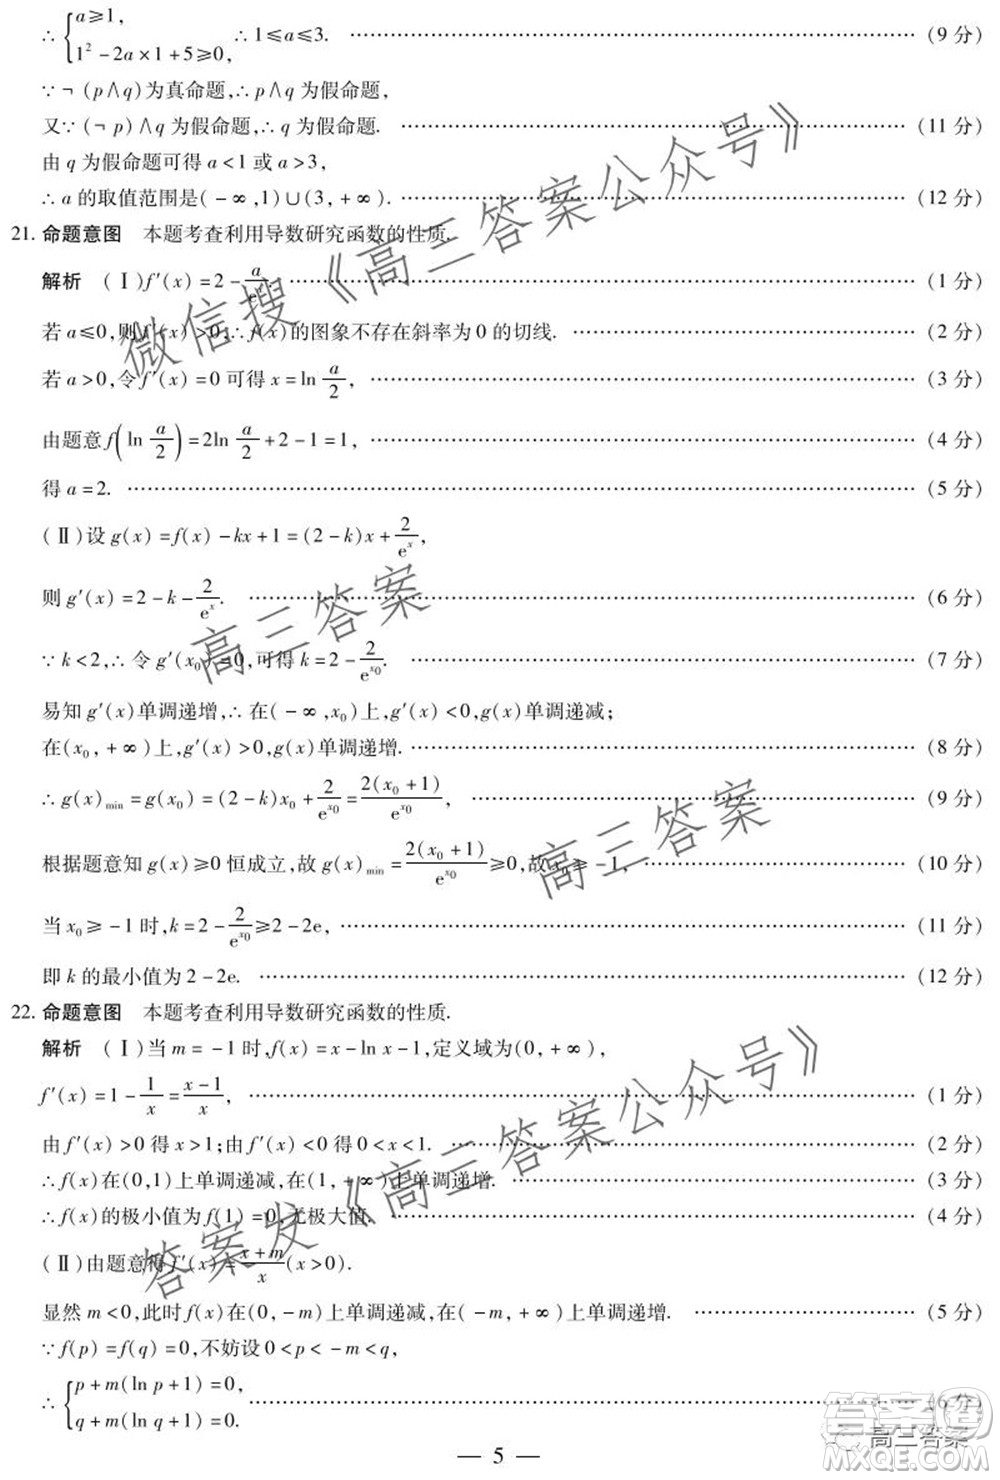 ∴ {a≥1, 1²-2a×1+5≥0, ∴ 1≤a≤3. ……(9 分)
∵ ¬ (p∧q)为真命题,∴ p∧q 为假命题,
又∵ (¬ p)∧q 为假命题,∴ q 为假命题. ……(11 分)
由 q 为假命题可得 a<1 或 a>3,
∴ a 的取值范围是(-∞,1)∪(3,+∞). ……(12 分)
21. 命题意图 本题考查利用导数研究函数的性质.
解析 (Ⅰ)f′(x)=2-a/eˣ. ……(1 分)
若 a≤0,则f′(x)>0,∴ f(x)的图象不存在斜率为 0 的切线. ……(2 分)
若 a>0,令 f′(x)=0 可得 x=ln a/2, ……(3 分)
由题意 f(ln a/2)=2ln a/2+2-1=1, ……(4 分)
得 a=2. ……(5 分)
(Ⅱ)设 g(x)=f(x)-kx+1=(2-k)x+2/eˣ,
则 g′(x)=2-k-2/eˣ. ……(6 分)
∵ k<2,∴ 令 g′(x₀)=0,可得 k=2-2/e^(x₀). ……(7 分)
易知 g′(x)单调递增,∴ 在(-∞,x₀)上,g′(x)<0,g(x)单调递减;
在(x₀,+∞)上,g′(x)>0,g(x)单调递增. ……(8 分)
∴ g(x)min=g(x₀)=(2-k)x₀+2/e^(x₀)=2(x₀+1)/e^(x₀), ……(9 分)
根据题意知 g(x)≥0 恒成立,故 g(x)min=2(x₀+1)/e^(x₀)≥0,故x₀≥-1, ……(10 分)
当 x₀≥-1 时,k=2-2/e^(x₀)≥2-2e, ……(11 分)
即 k 的最小值为 2-2e. ……(12 分)
22. 命题意图 本题考查利用导数研究函数的性质.
解析 (Ⅰ)当 m=-1 时,f(x)=x-ln x-1,定义域为(0,+∞),
f′(x)=1-1/x=(x-1)/x, ……(1 分)
由 f′(x)>0 得 x>1;由 f′(x)<0 得 0<x<1. ……(2 分)
∴ f(x)在(0,1)上单调递减,在(1,+∞)上单调递增. ……(3 分)
∴ f(x)的极小值为 f(1)=0,无极大值. ……(4 分)
(Ⅱ)由题意得 f′(x)=(x+m)/x(x>0).
显然 m<0,此时 f(x)在(0,-m)上单调递减,在(-m,+∞)上单调递增. ……(5 分)
∵ f(p)=f(q)=0,不妨设 0<p<-m<q,
∴ {p+m(ln p+1)=0, q+m(ln q+1)=0. ……(6 分)
— 5 —
微信搜《高三答案公众号》
高三答案
高三答案
答案发《高三答案公众号》
答案圈
高三答案
MXQE.COM